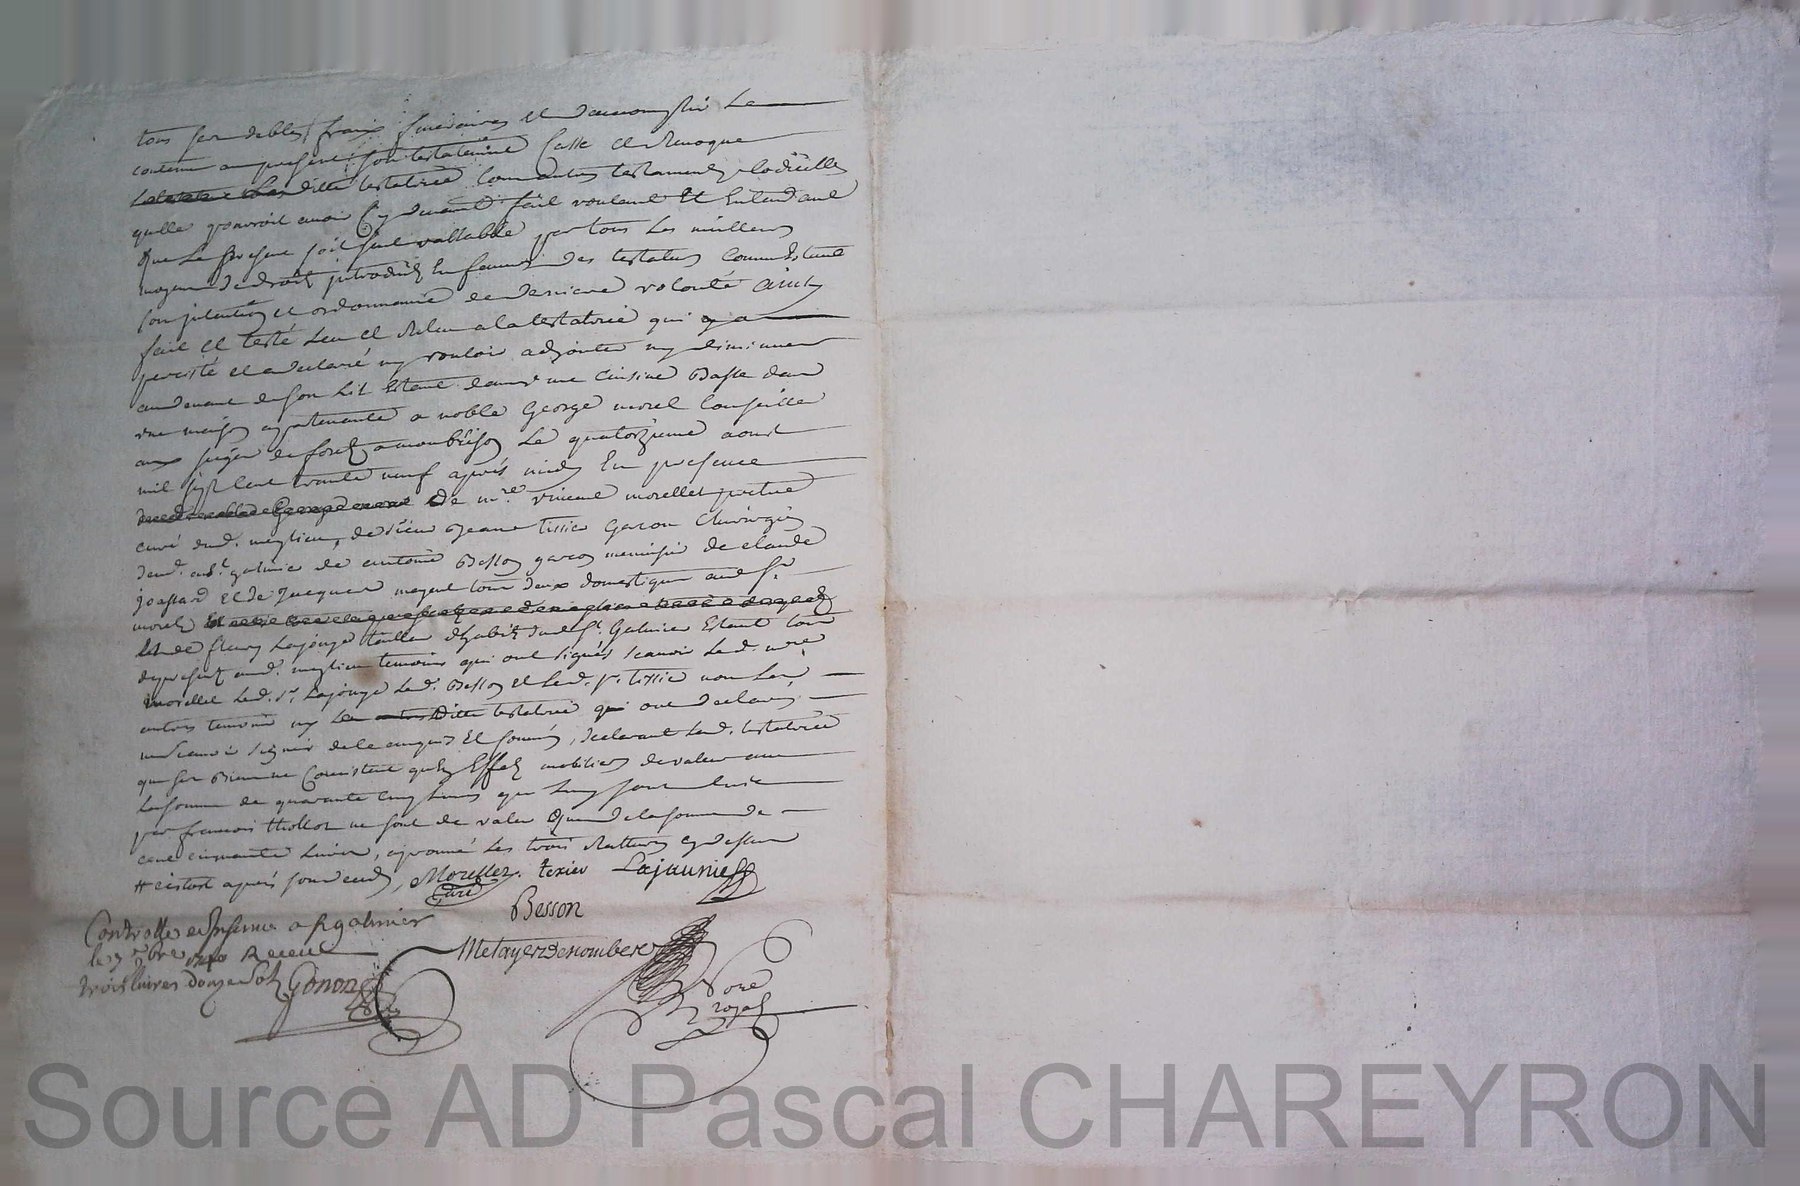 tous ses debtes, fraix funeraires et daccomplir le
contenu au present son testament casse et revoque
laditte testatrice tous autres testaments codicilles
quelle pourroit avoir cy devant fait voulant et entendant
que le present soit seul vallable par tous les meilleurs
moyens de droit introduits en faveur des testateurs comme estant
son jntention et ordonnance de derniere volonté ainsy
fait et testé leu et releu a la testatrice qui y a
percisté et a declaré ny vouloir adjouter ny diminuer
au devant de son lit estant dans une cuisine basse dans
une maison appartenante a noble George morel conseiller
aux sieges de forest a montbrison le quatorzieme aoust
mil sept cent trante neuf apres midy en presence
de mre. vincent morellet pretre
curé dud. meylieu, de sieur Jean tissier garcon chirurgien
dem.t a st. galmier de antoine Besson garcon menuisier de claude
joassard et de Jacques mayent tous deux domestiques aud. sr.
morel
et de fleury Lajonye tailleur d'habits dud. st. Galmier estant tous
de present aud. meylieu temoins qui ont signés scavoir led. mre.
morellet led. sr. Lajonye led. Besson et led. sr. tissier non les
autres temoins ny la ditte testatrice qui ont declarés
ne scavoir signer de ce enquis et sommés, declarant lad. testatrice
que ses biens ne consistent qu'en effets mobiliers de valeur
la somme de quarante cinq livres que
par francois thiollier ne sont de valeur que de la somme de
cent cinquante livres, aprouvé les trois ratures cy dessus
# cestost apres son deced, Morellet. texier Lajaunie
Curé
Besson
Controllé et Insinué a St galmier
Metayer Descombes
le 3 7bre 1740 Receu
Nore
trois livres douze sols Gonon
royal
Source AD Pascal CHAREYRON